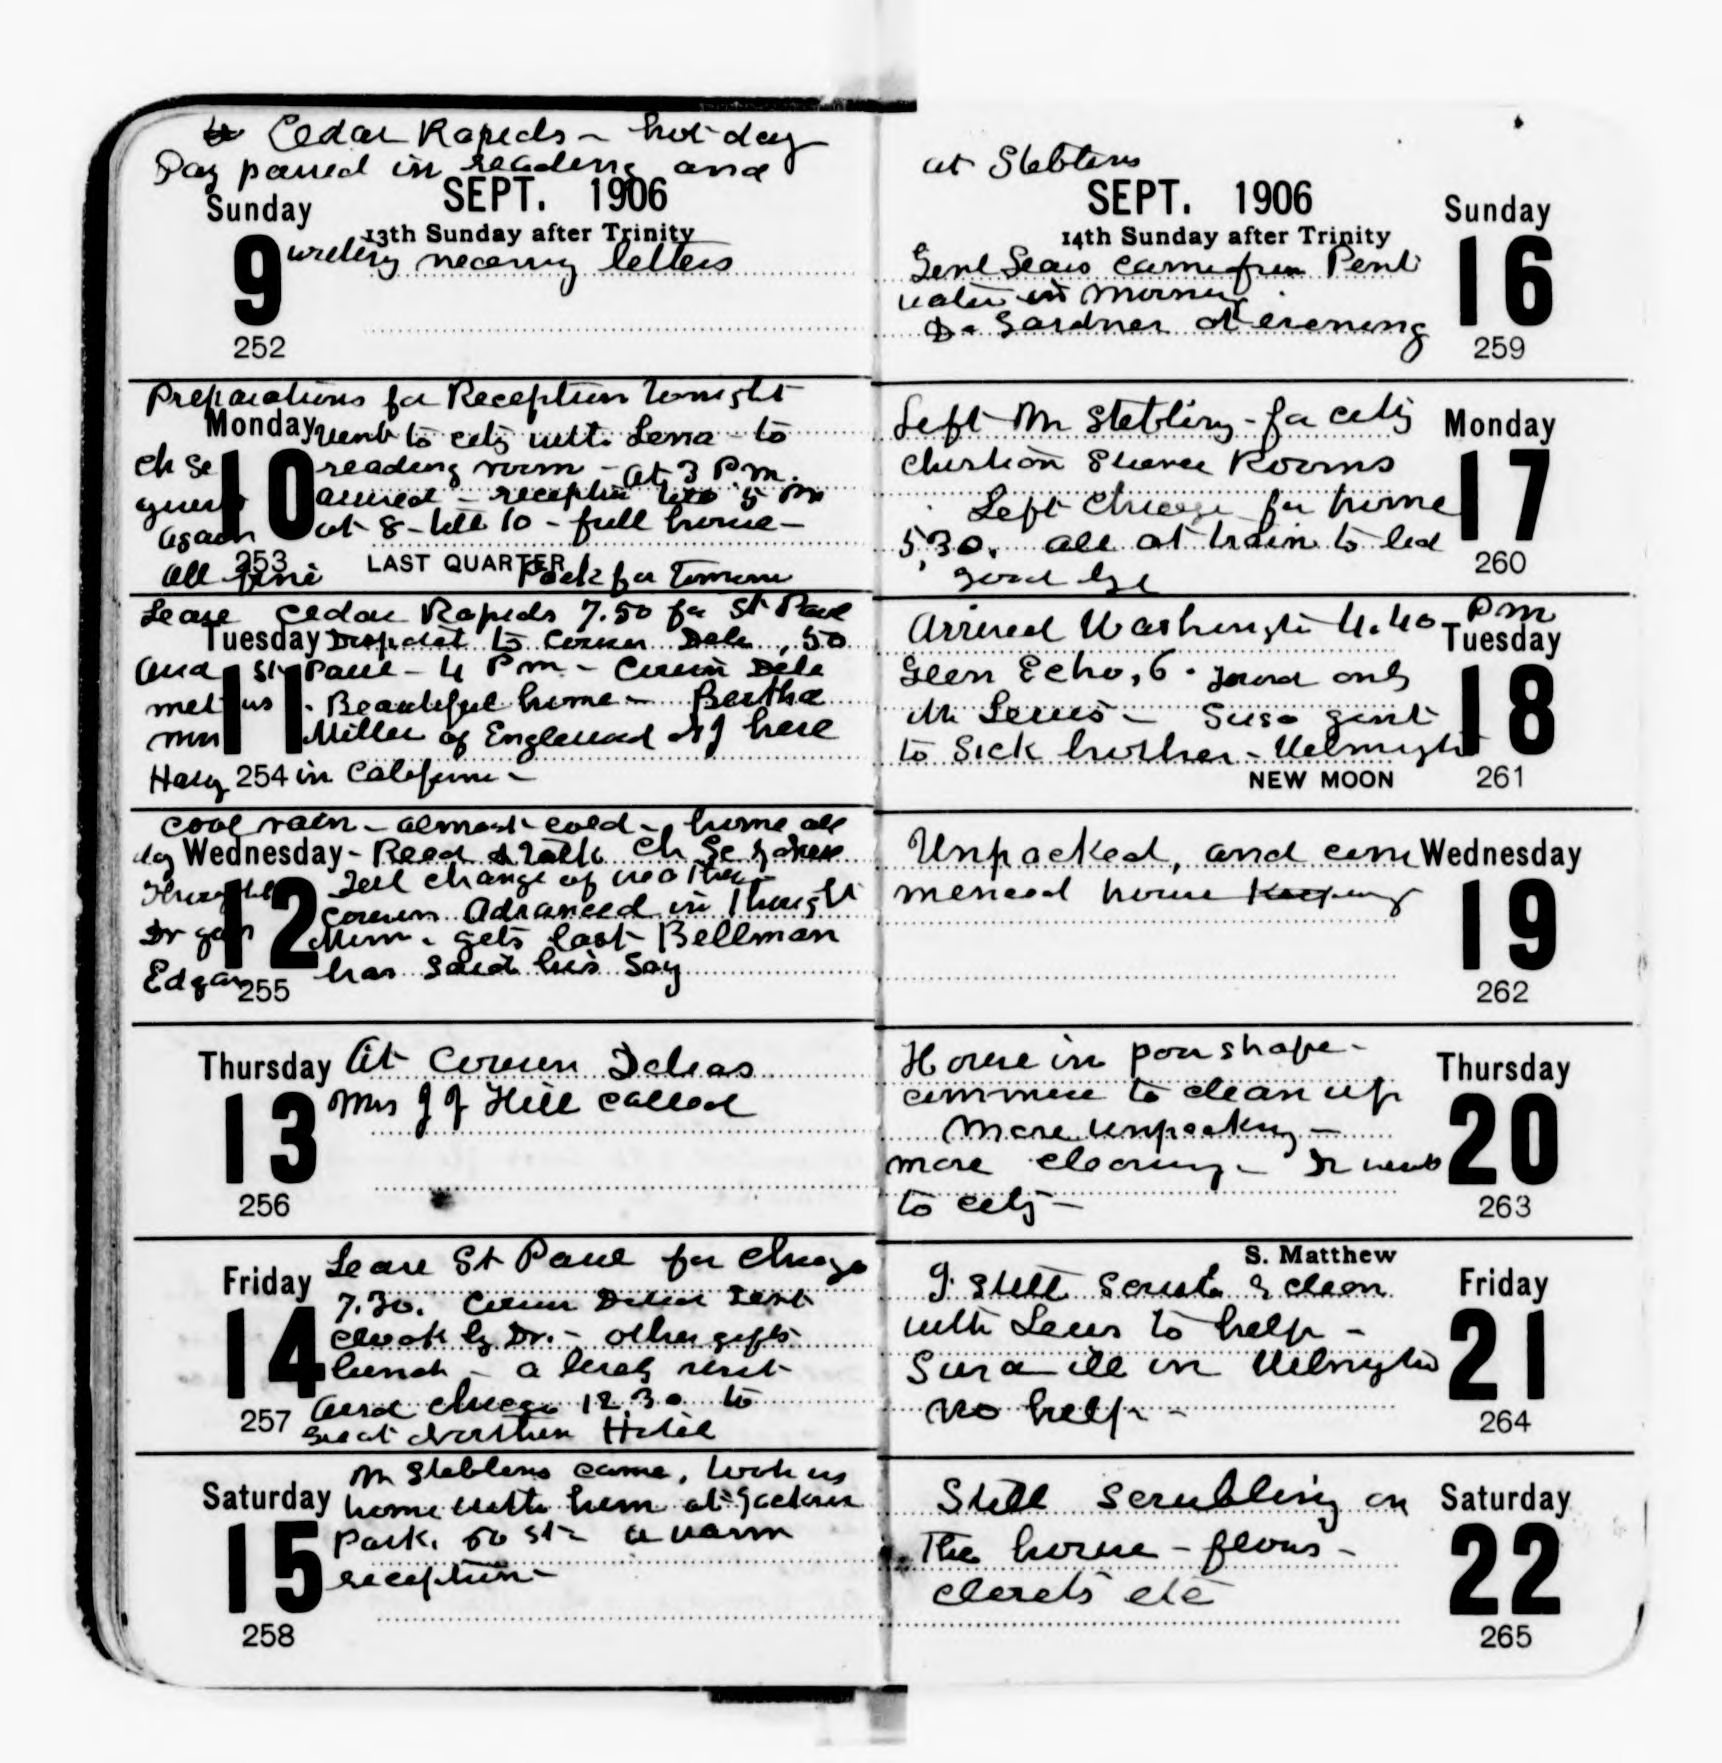 Cedar Rapids – hot day
Day passed in reading and
SEPT. 1906
Sunday
13th Sunday after Trinity
9 writing necessary letters
252
Preparations for Reception tonight
Monday went to city with Lena – to
Ch Sc reading room – at 3 P.m.
10
guests – reception 5 Pm
again at 8 – till 10 – full house –
253 LAST QUARTER
all fine Pack for Tomorrow
Leave Cedar Rapids 7.50 for St Paul
Tuesday to cousin Dela , 50
and St Paul – 4 P m. – Cousin Dela
11
met us . Beautiful home – Bertha
Mrs Miller of Englewood N J here
Harry 254 in California –
cool rain – almost cold – home all
day Wednesday – Read & talk Ch Sc &
Thought Feel change of weather
12
cousin advanced in Thought
Dr gets Mum . gets last Bellman
Edgar has said his say
255
Thursday At Cousin Delias
13 Mrs J J Hill called
256
Leave St Paul for Chicago
Friday
7.30. Cousin Delia sent
14 by Dr. – other gifts
lunch – a lovely visit
and Chicago 12.30 to
257
Great Northern Hotel
Mr Stebbins came, took us
Saturday home with him at Jackson
15 Park. 50 St – a warm
reception –
258
at Stebbins
SEPT. 1906
Sunday
14th Sunday after Trinity
Genl Sears came from Pent
16
water in morning
Dr Gardner at evening
259
Left Mr Stebbins – for city
Monday
Christian Science Rooms
17
Left Chicago for home
5,30. all at train to bid
260
good bye
Arrived Washington 4.40 Pm
Tuesday
Glen Echo, 6 . found only
18
Mr Lewis – Susa gone
to sick brother – Wilmington
NEW MOON 261
Unpacked, and com Wednesday
menced house keeping
19
262
House in poor shape –
Thursday
commence to clean up
20
More unpacking –
more cleaning – Dr went
to city –
263
S. Matthew
I still scrub & clean
Friday
with Lewis to help –
21
Susa ill in Wilmington
No help –
264
Still scrubbing on
Saturday
The house – floors –
22
closets etc
265